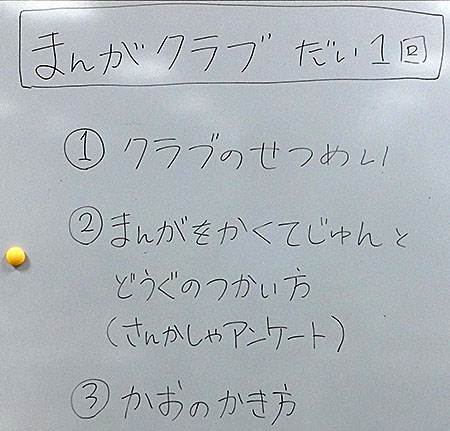 まんがクラブ だい1回
① クラブのせつめい
② まんがをかくてじゅんと
どうぐのつかい方
(さんかしゃアンケート)
③ かおのかき方